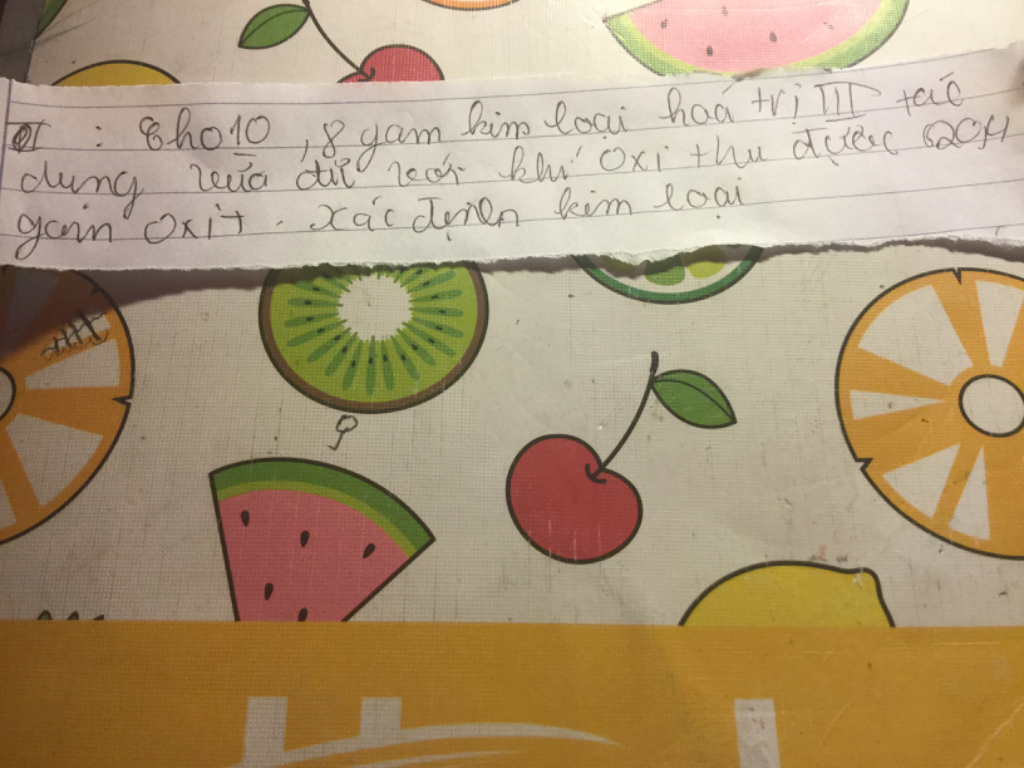 : Cho 10,8 gam kim loại hoá trị III tác
dụng vừa đủ với khí oxi thu được 20,4
gam oxit. Xác định kim loại